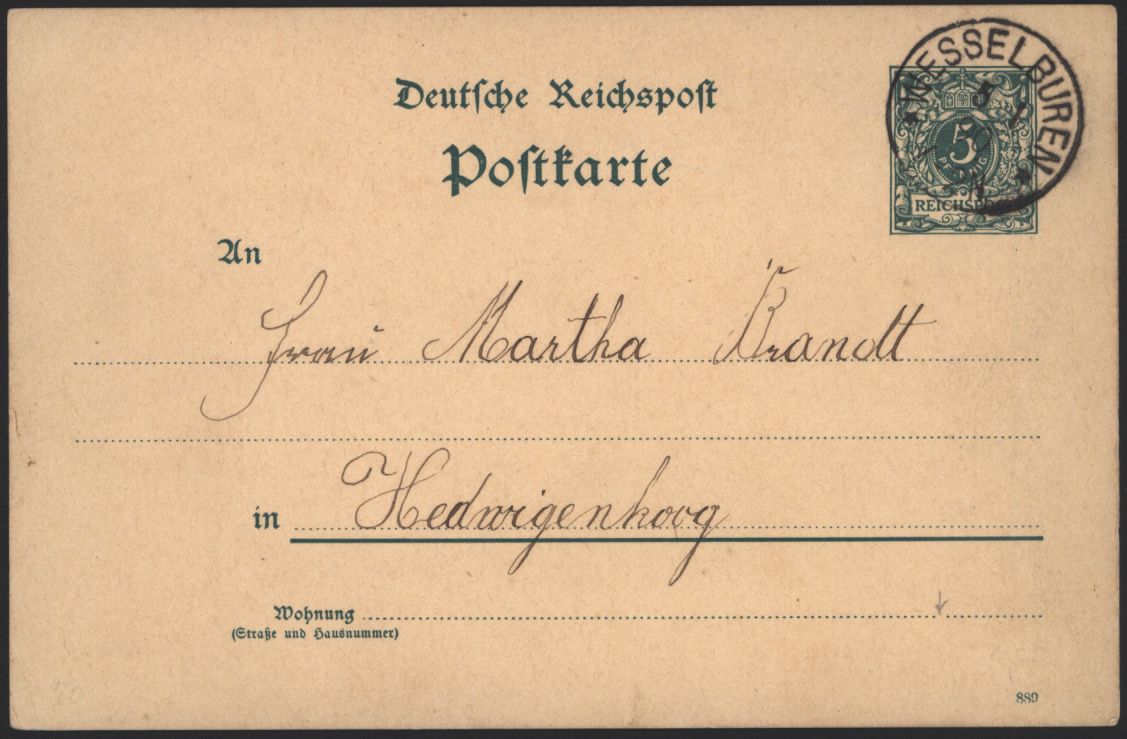 Deutsche Reichspost
Postkarte
WESSELBUREN
5
PFENNIG
REICHSPOST
An
Frau Martha Brandt
in Hedwigenkoog
Wohnung
(Straße und Hausnummer)
889